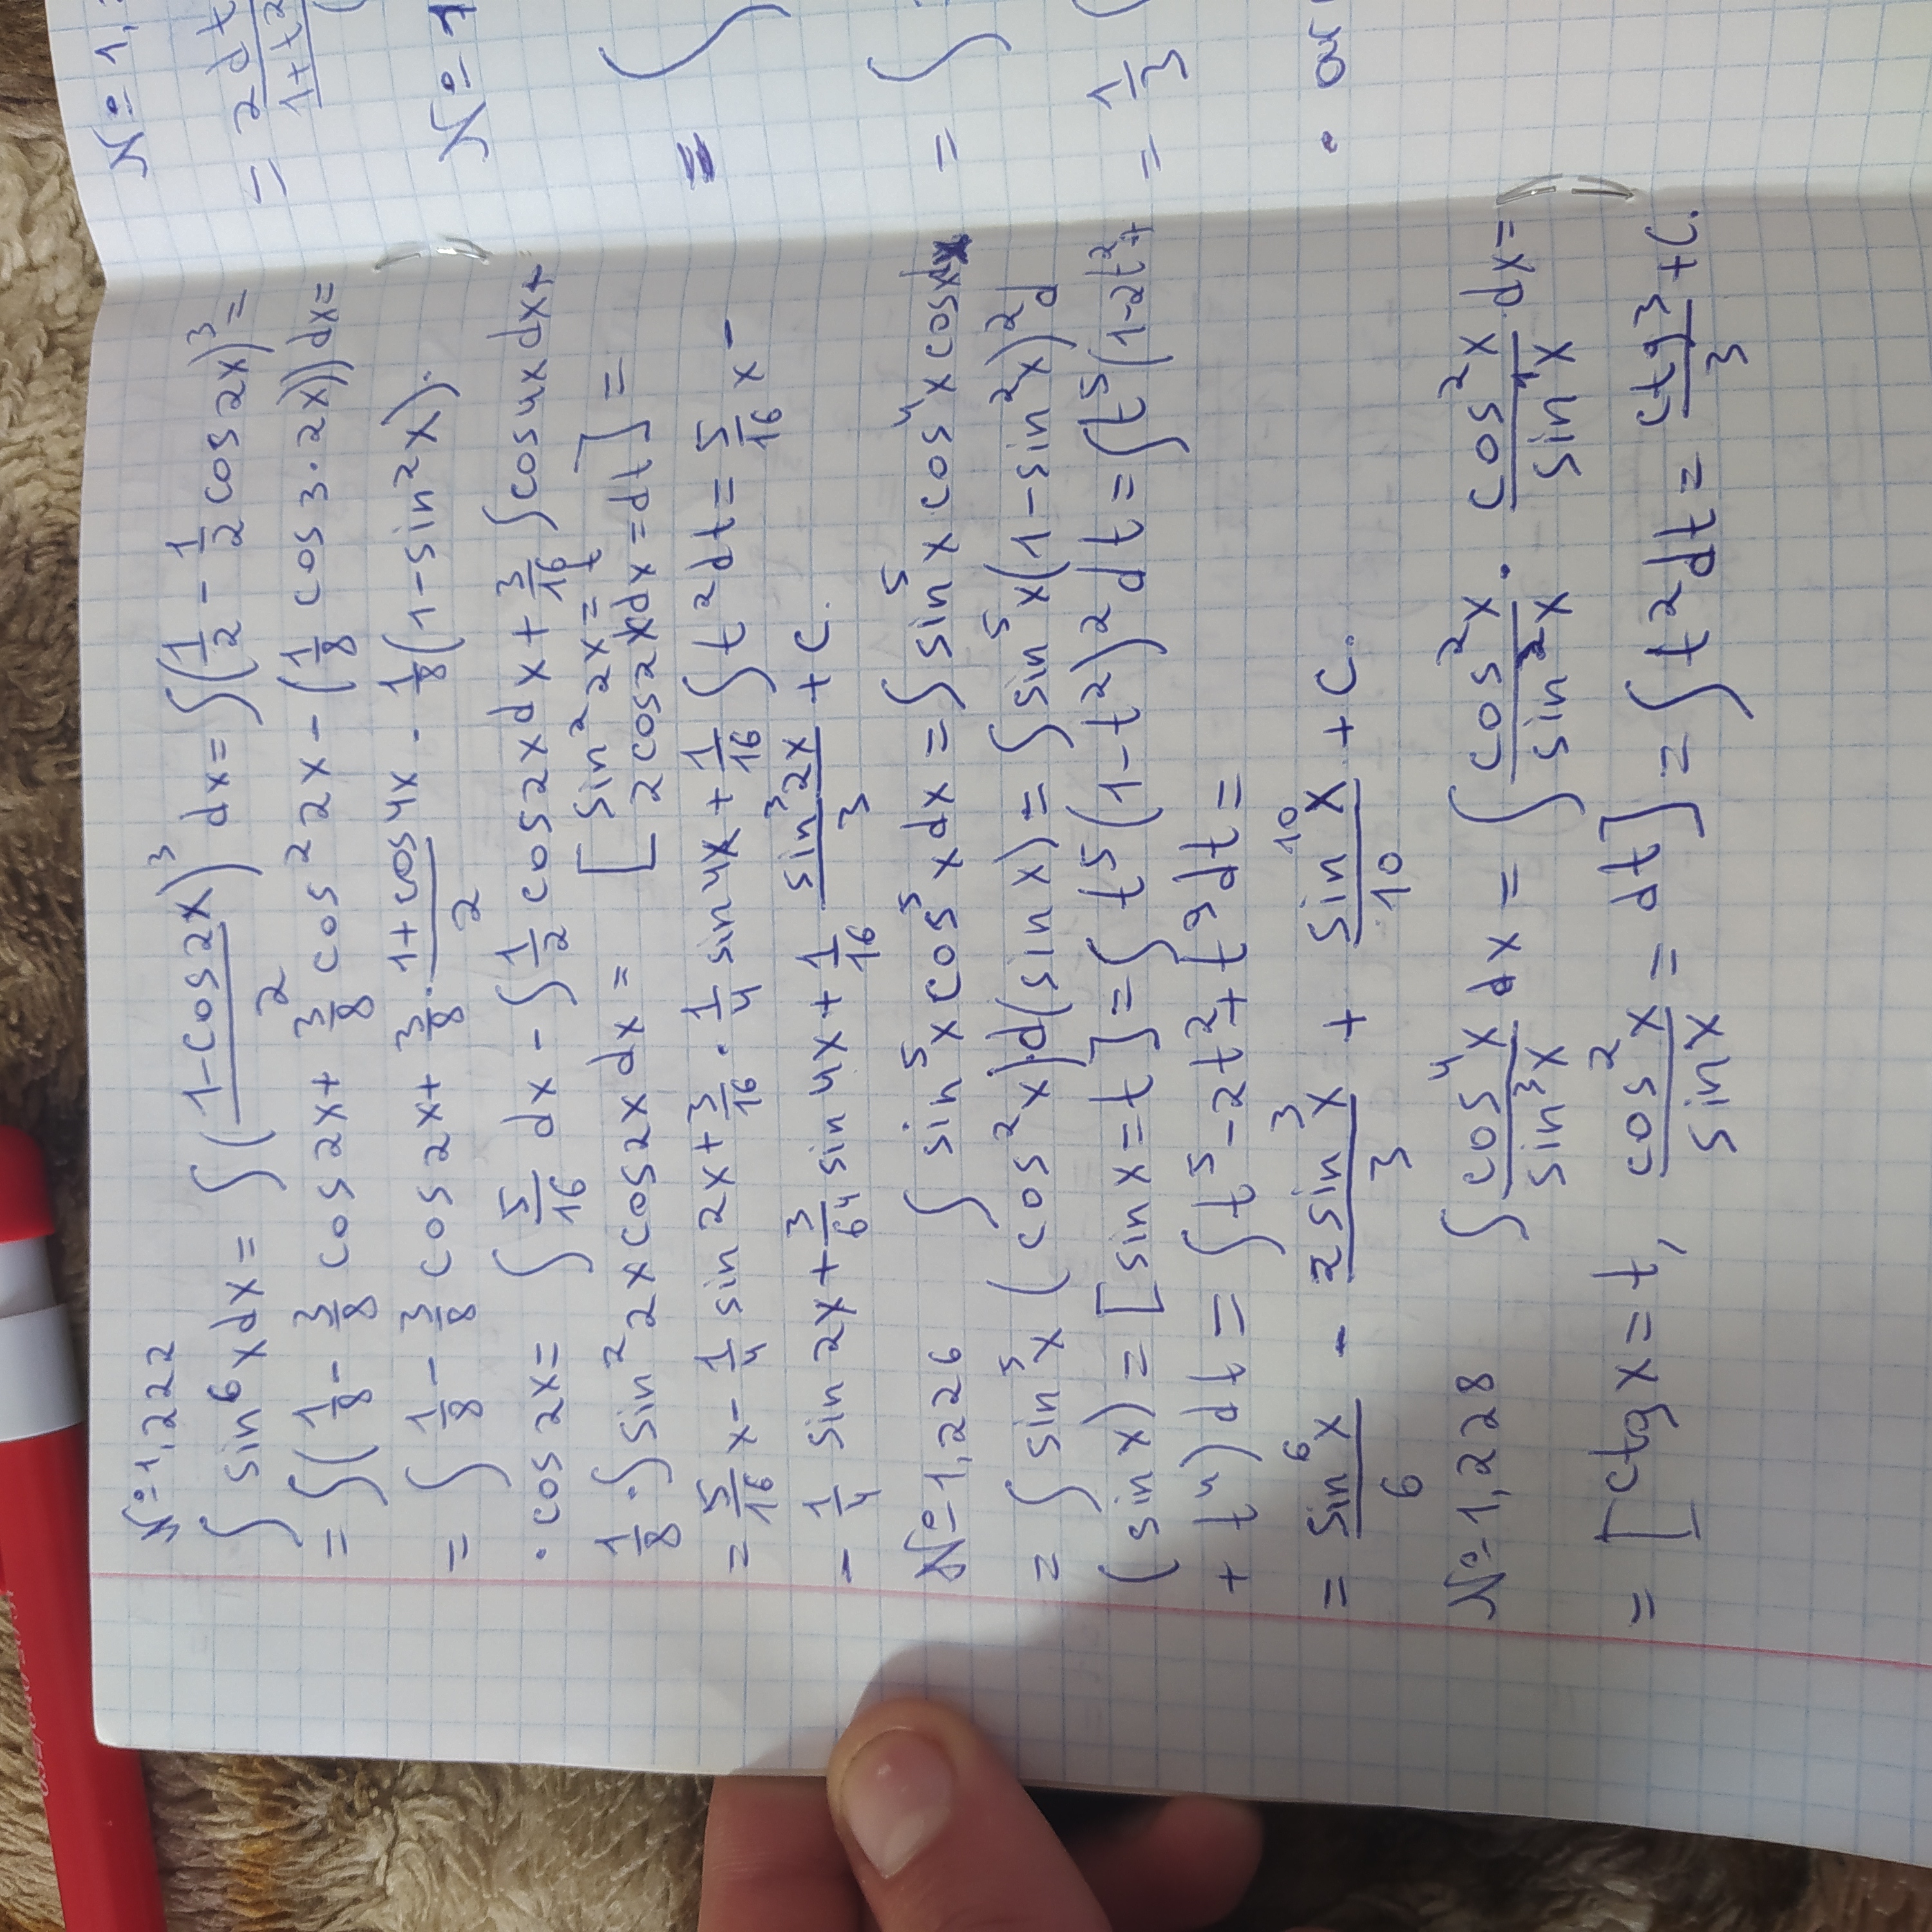 № 1,222
∫ sin⁶xdx = ∫ ((1-cos2x)/2)³ dx = ∫(1/2 - 1/2 cos 2x)³ =
= ∫(1/8 - 3/8 cos 2x + 3/8 cos² 2x - (1/8 cos 3·2x)) dx =
= ∫ 1/8 - 3/8 cos 2x + 3/8 · (1+cos4x)/2 - 1/8(1-sin²x)·
· cos 2x = ∫ 5/16 dx - ∫ 1/2 cos2xdx + 3/16 ∫cos4xdx+
1/8 · ∫ sin² 2x cos2x dx = [sin² 2x = t
2cos2xdx = dt] =
= 5/16 x - 1/4 sin 2x + 3/16 · 1/4 sin 4x + 1/16 ∫ t²dt = 5/16 x -
- 1/4 sin 2x + 3/64 sin 4x + 1/16 (sin³2x)/3 + C.
№ 1,226 ∫ sin⁵x cos⁵x dx = ∫ sin⁵x cos⁴x cosxdx
= ∫ sin⁵x (cos²x)·d(sin x) = ∫ sin⁵x(1-sin²x)²d
(sin x) = [sin x = t] = ∫ t⁵(1-t²)² dt = ∫t⁵(1-2t²+
+ t⁴) dt = ∫ t⁵ - 2t² + t⁹ dt =
= (sin⁶x)/6 - (2sin³x)/3 + (sin¹⁰x)/10 + C.
№ 1,228 ∫ (cos⁴x)/(sin³x) dx = ∫ (cos²x)/(sin²x) · (cos²x)/(sin¹x) dx =
= [ctg x = t, (cos²x)/(sin x) = dt] = ∫ t²dt = (ctg3)/3 + C.
№ 1,
= 2dt
1+t²
(
№ 1
= ∫
= ∫
= 1/3 (